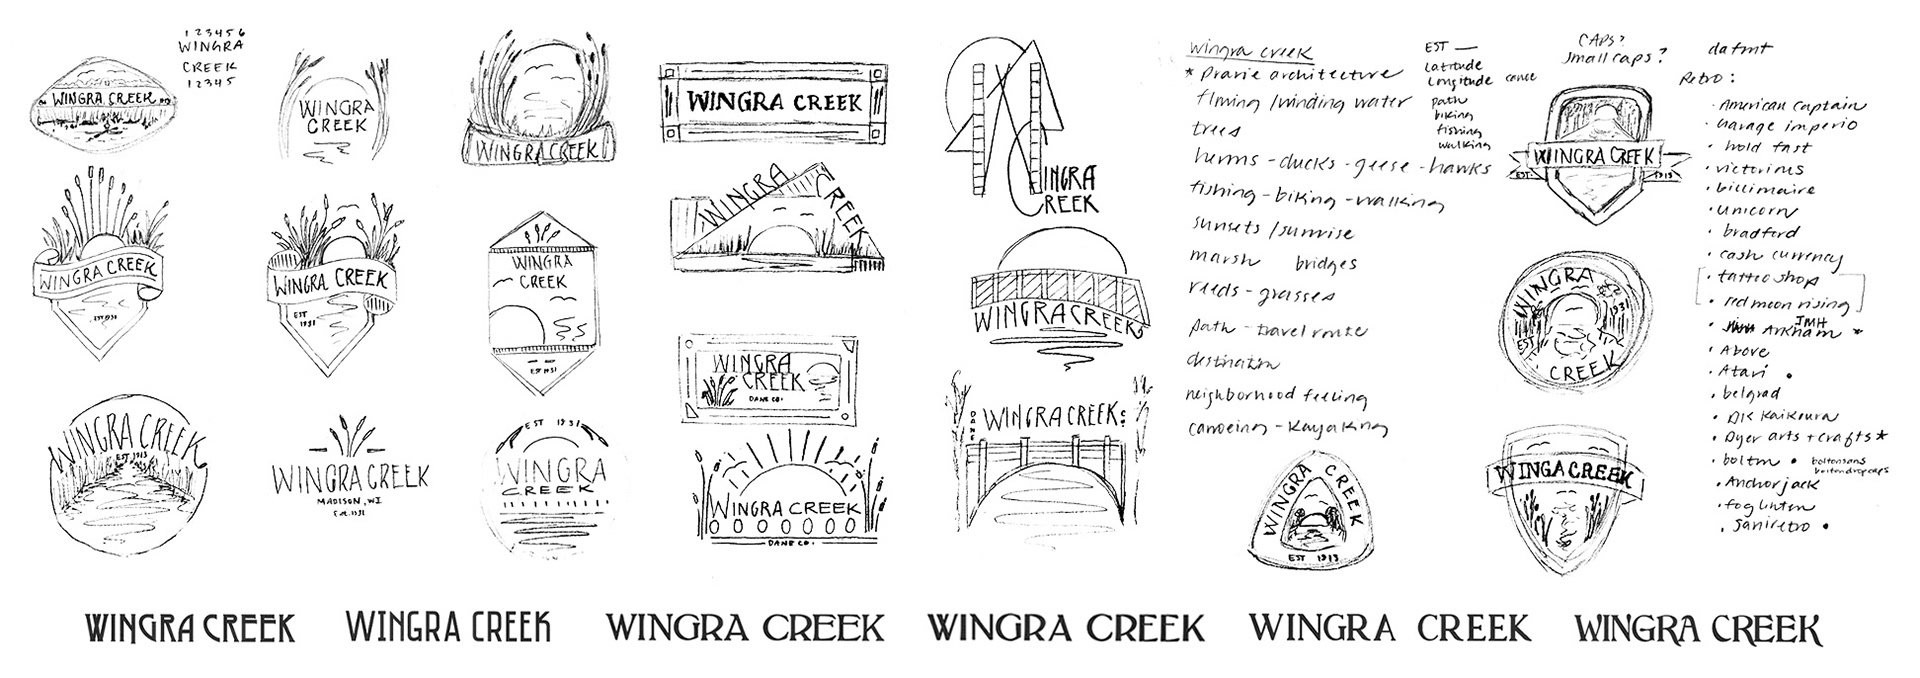 1 2 3 4 5 6
WINGRA
CREEK
1 2 3 4 5
WINGRA CREEK
WINGRA
CREEK
WINGRA CREEK
WINGRA CREEK
WINGRA CREEK
EST 1931
WINGRA CREEK
EST
1931
WINGRA
CREEK
EST 1931
WINGRA CREEK
WINGRA
CREEK
DANE CO.
WINGRA CREEK
EST. 1913
WINGRA CREEK
MADISON, WI
Est. 1931
EST 1931
WINGRA
CREEK
WINGRA CREEK
DANE CO.
WINGRA
CREEK
WINGRA CREEK
DANE
WINGRA CREEK
wingra creek
* Prarie architecture
flowing / winding water
trees
herons - ducks - geese - hawks
fishing - biking - walking
sunsets / sunrise
marsh bridges
reeds - grasses
path - travel route
destination
neighborhood feeling
canoeing - kayaking
EST —
Latitude
Longitude canoe
path
biking
fishing
walking
CAPS?
Small caps?
WINGRA CREEK
EST. 1913
WINGRA
EST 1931
CREEK
WINGRA CREEK
EST 1913
WINGA CREEK
dafont
Retro:
· American Captain
· Garage imperio
· hold fast
· victorius
· billimaire
· unicorn
· bradford
· cash currency
· tattoo shop
· red moon rising
· Arkham JMH *
· Above
· Atari •
· belgrad
· DK Kaikoura
· Dyer arts + crafts *
· bolton • boltonsans
boltondropcaps
· Anchor jack
· foglihten
· Saniretro •
WINGRA CREEK WINGRA CREEK WINGRA CREEK WINGRA CREEK WINGRA CREEK WINGRA CREEK